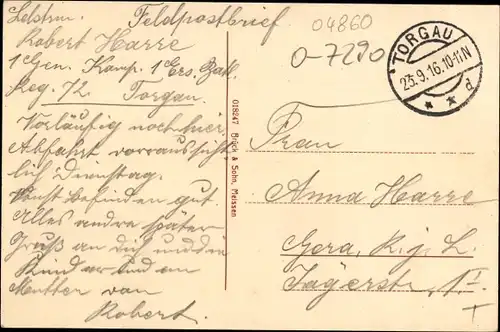 Feldpostbrief
Robert Harre
1 Gen. Komp. 1 Ers. Batl.
Reg. 72 Torgau.
Vorläufig noch hier,
Abfahrt vorraussicht
lich Dienstag.
Sonst befinden gut.
Alles andre später
Gruß an Dich und den
Kinder und an
Mutter von
Robert.
018247 Brück & Sohn, Meissen
04860
0-7290
TORGAU
23.9.16.10-11N
* * d
Frau
Anna Harre
Gera, R. j. L.
Jägerstr. 1 I